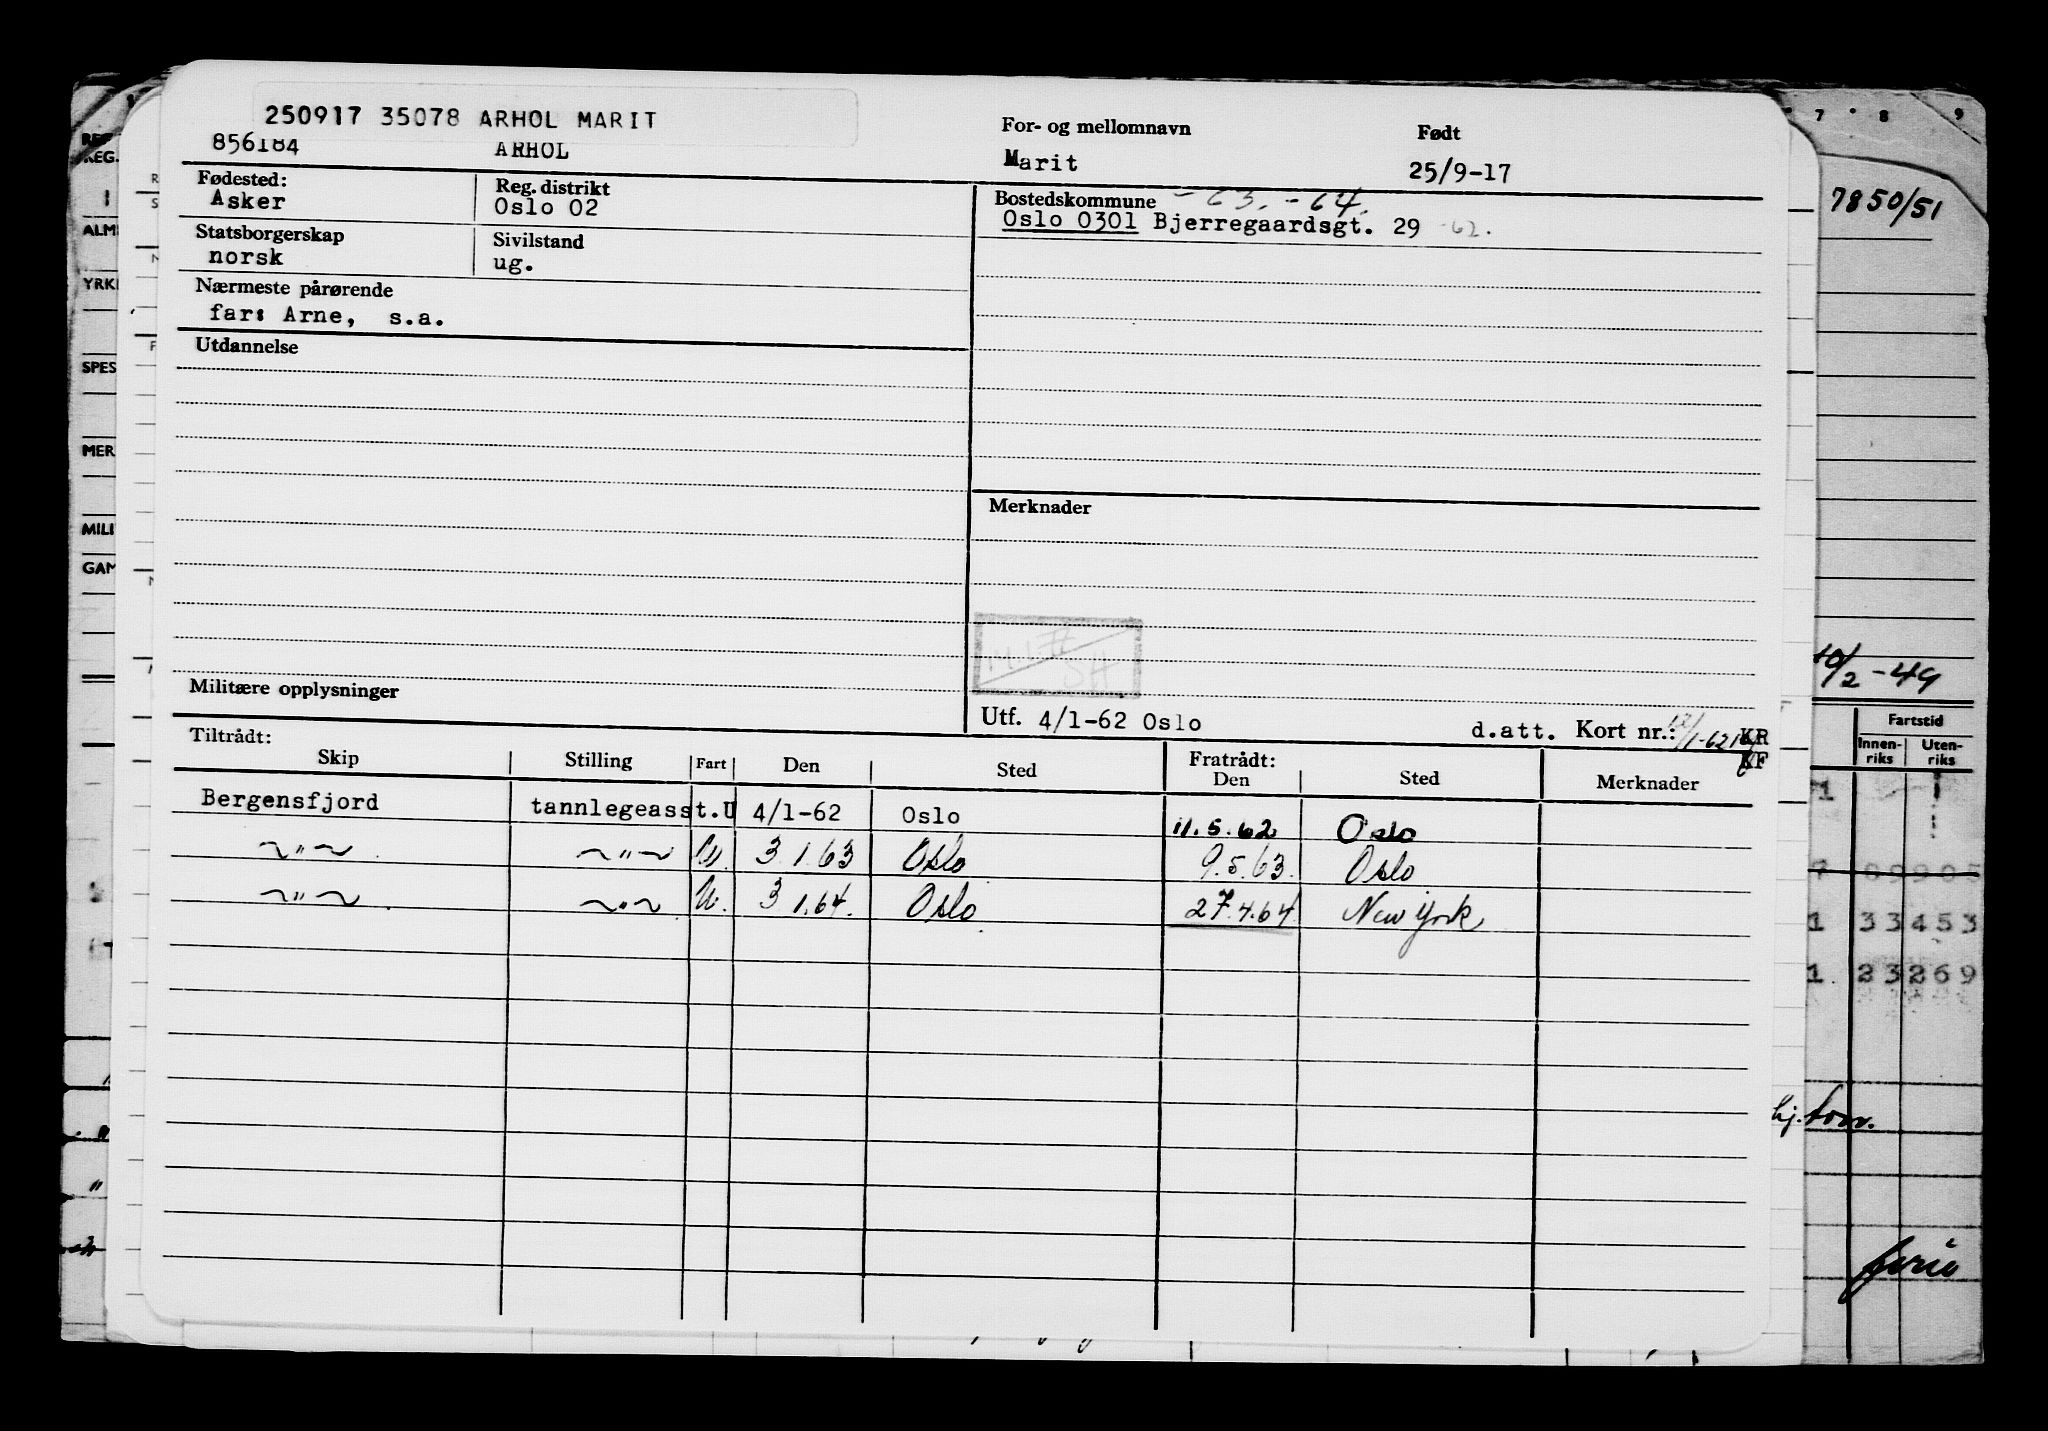 250917 35078 ARHOL MARIT
856184 ARHOL
For- og mellomnavn Født
Marit 25/9-17
Fødested: Reg. distrikt
Asker Oslo 02
Statsborgerskap Sivilstand
norsk ug.
Nærmeste pårørende
far: Arne, s.a.
Utdannelse
Militære opplysninger
Bostedskommune -63. -64.
Oslo 0301 Bjerregaardsgt. 29 -62.
Merknader
Utf. 4/1-62 Oslo d.att. Kort nr.: KR
KF
Tiltrådt: Fratrådt:
Skip Stilling Fart Den Sted Den Sted Merknader
Bergensfjord tannlegeasst. U 4/1-62 Oslo 11.5.62 Oslo
~"~ ~"~ U. 3.1.63 Oslo 9.5.63. Oslo
~"~ ~"~ U. 3.1.64. Oslo 27.4.64 New York
7 8 9
7850/51
10/2-49
Fartstid
Innen-riks Uten-riks
1
1 33453
1. 23269
ALM
YRK
SPES
MER
MILI
GAM